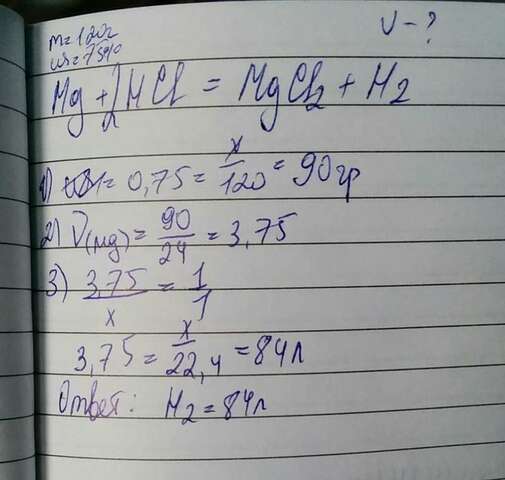 m=120г
V-?
ω=75%
Mg+2HCl=MgCl2+H2
1) = 0,75 = x/120 = 90гр
2) ν(Mg) = 90/24 = 3,75
3) 3,75/x = 1/1
3,75 = x/22,4 = 84л
Ответ: H2=84л